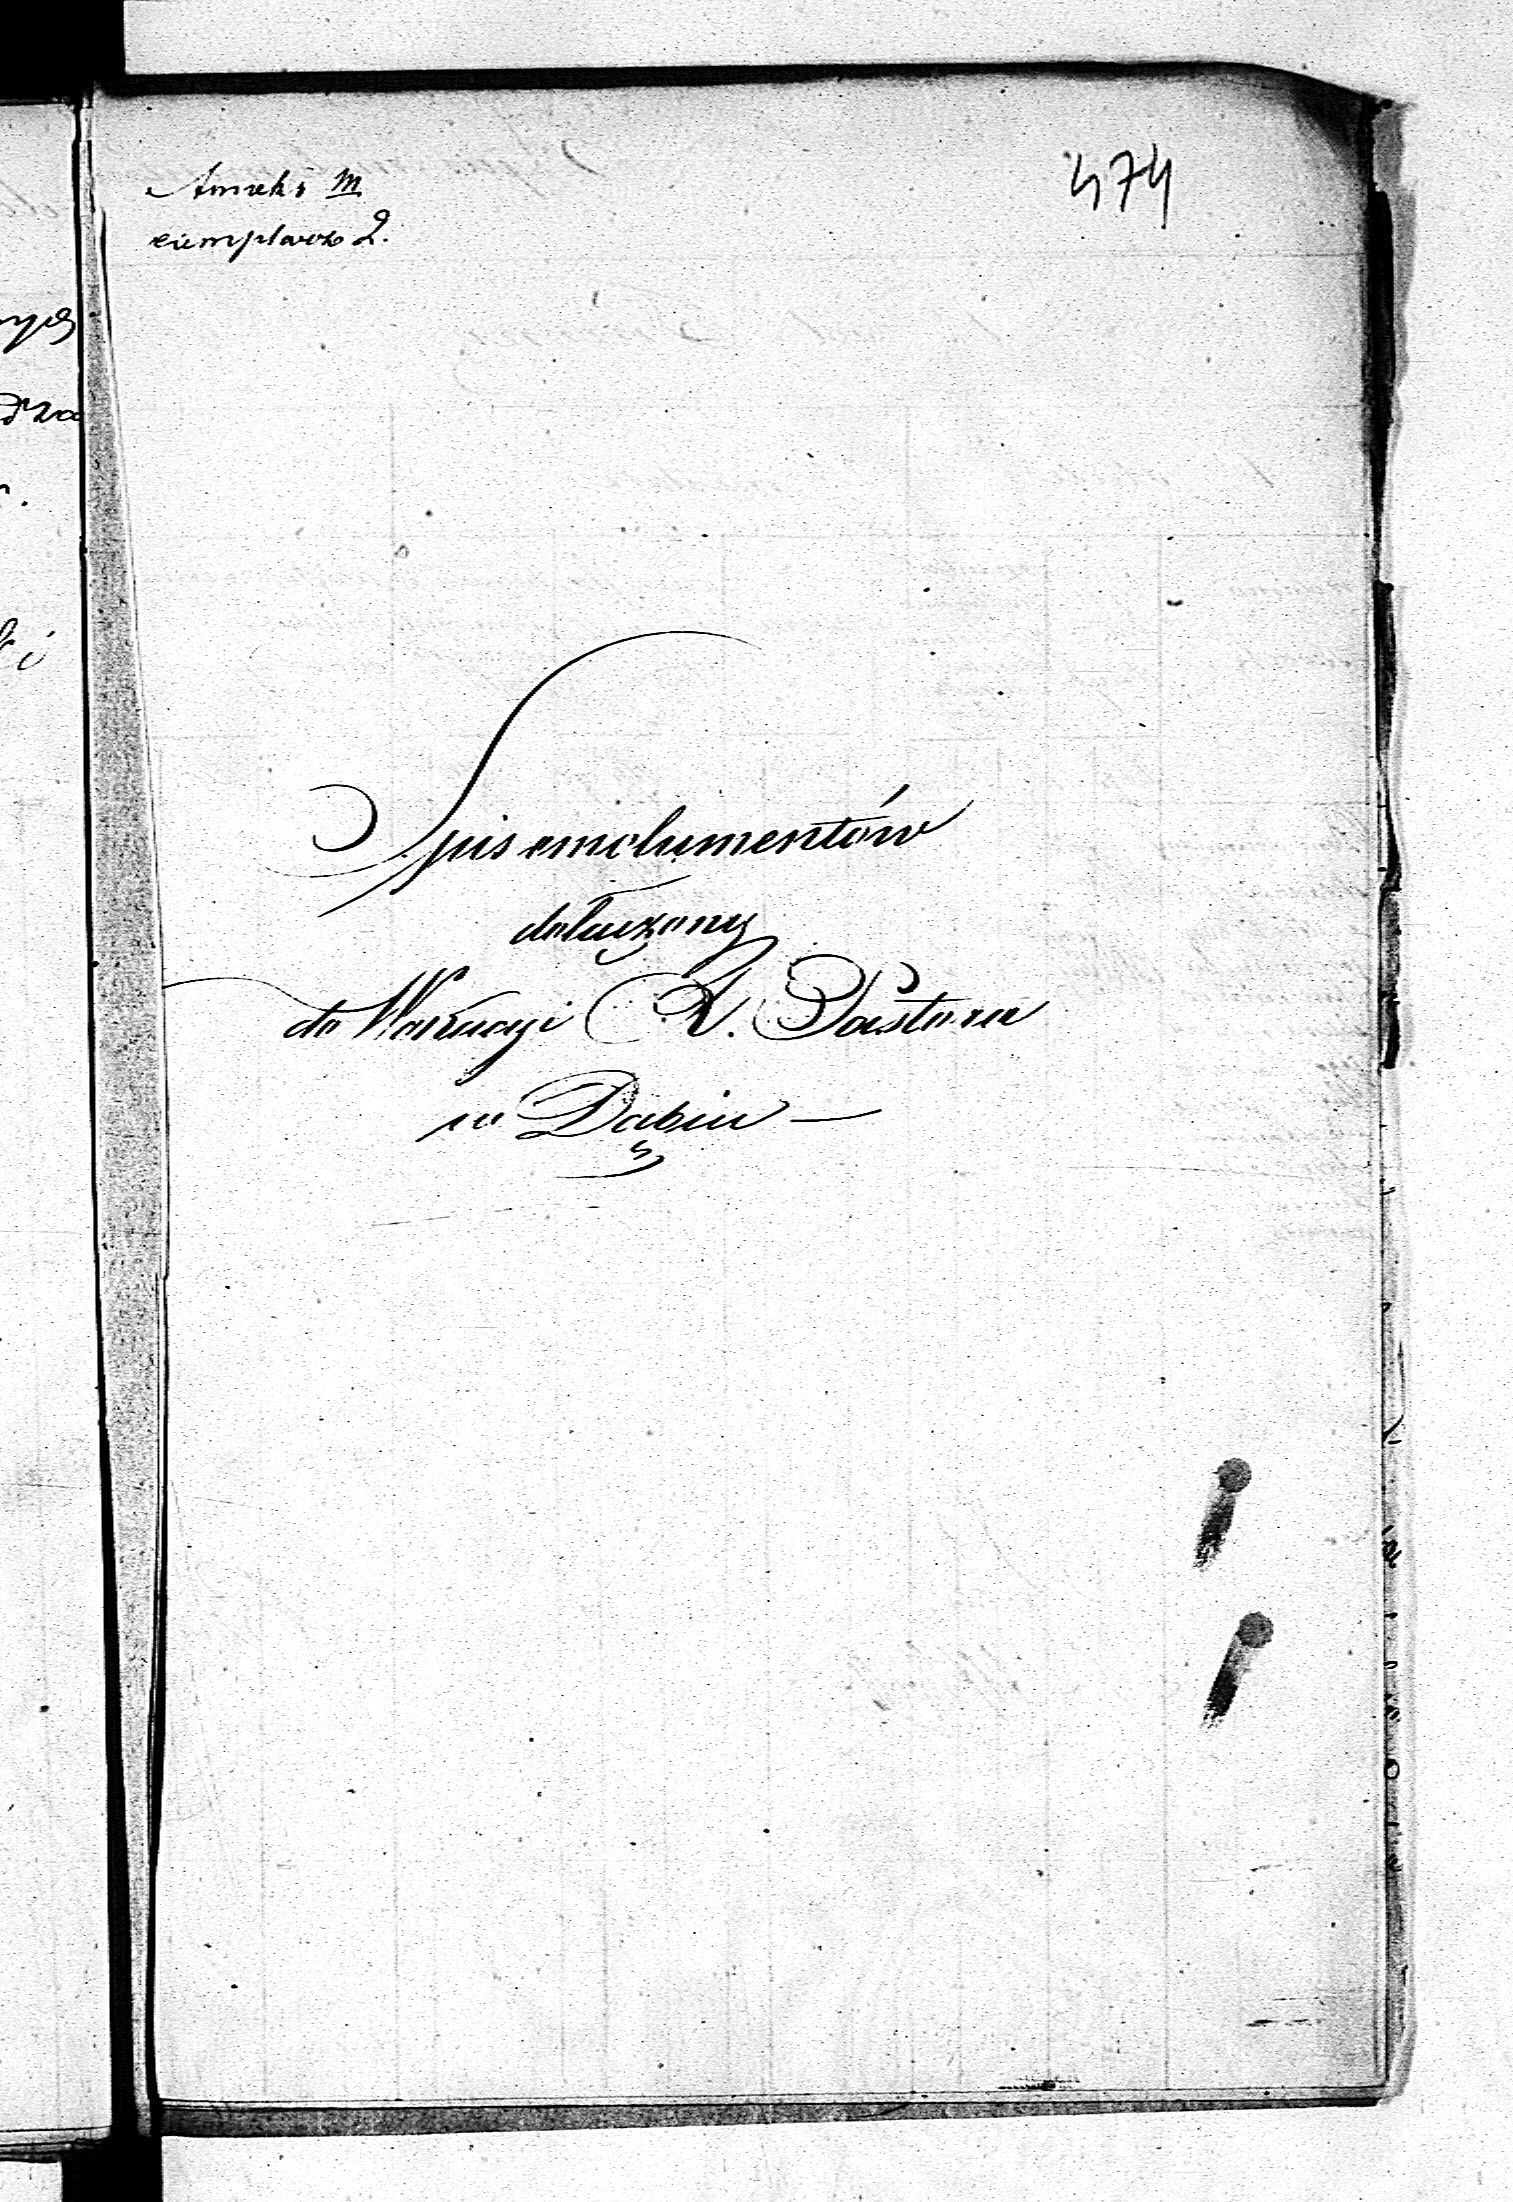 Aneks M
exemplarz 2.
474
Spis emolumentów
dołączony
do Wokacyi X. Pastora
w Dąbiu